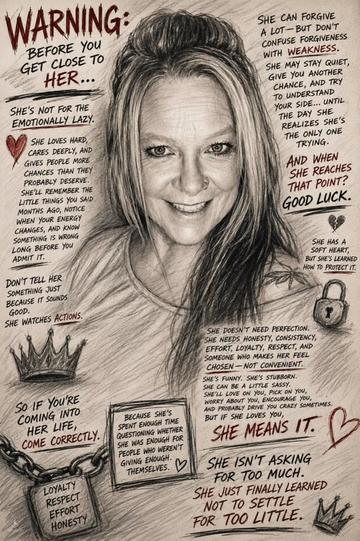 WARNING:
BEFORE YOU
GET CLOSE TO
HER...
SHE'S NOT FOR THE
EMOTIONALLY LAZY.
SHE LOVES HARD,
CARES DEEPLY, AND
GIVES PEOPLE MORE
CHANCES THAN THEY
PROBABLY DESERVE.
SHE'LL REMEMBER THE
LITTLE THINGS YOU SAID
MONTHS AGO, NOTICE
WHEN YOUR ENERGY
CHANGES, AND KNOW
SOMETHING IS WRONG
LONG BEFORE YOU
ADMIT IT.
DON'T TELL HER
SOMETHING JUST
BECAUSE IT SOUNDS
GOOD.
SHE WATCHES ACTIONS.
SO IF YOU'RE
COMING INTO
HER LIFE,
COME CORRECTLY.
LOYALTY
RESPECT
EFFORT
HONESTY
BECAUSE SHE'S
SPENT ENOUGH TIME
QUESTIONING WHETHER
SHE WAS ENOUGH FOR
PEOPLE WHO WEREN'T
GIVING ENOUGH
THEMSELVES.
SHE CAN FORGIVE
A LOT—BUT DON'T
CONFUSE FORGIVENESS
WITH WEAKNESS.
SHE MAY STAY QUIET,
GIVE YOU ANOTHER
CHANCE, AND TRY
TO UNDERSTAND
YOUR SIDE... UNTIL
THE DAY SHE
REALIZES SHE'S
THE ONLY ONE
TRYING.
AND WHEN
SHE REACHES
THAT POINT?
GOOD LUCK.
SHE HAS A
SOFT HEART,
BUT SHE'S LEARNED
HOW TO PROTECT IT.
SHE DOESN'T NEED PERFECTION.
SHE NEEDS HONESTY, CONSISTENCY,
EFFORT, LOYALTY, RESPECT, AND
SOMEONE WHO MAKES HER FEEL
CHOSEN—NOT CONVENIENT.
SHE'S FUNNY. SHE'S STUBBORN.
SHE CAN BE A LITTLE SASSY.
SHE'LL LOVE ON YOU, PICK ON YOU,
WORRY ABOUT YOU, ENCOURAGE YOU,
AND PROBABLY DRIVE YOU CRAZY SOMETIMES.
BUT IF SHE LOVES YOU,
SHE MEANS IT.
SHE ISN'T ASKING
FOR TOO MUCH.
SHE JUST FINALLY LEARNED
NOT TO SETTLE
FOR TOO LITTLE.